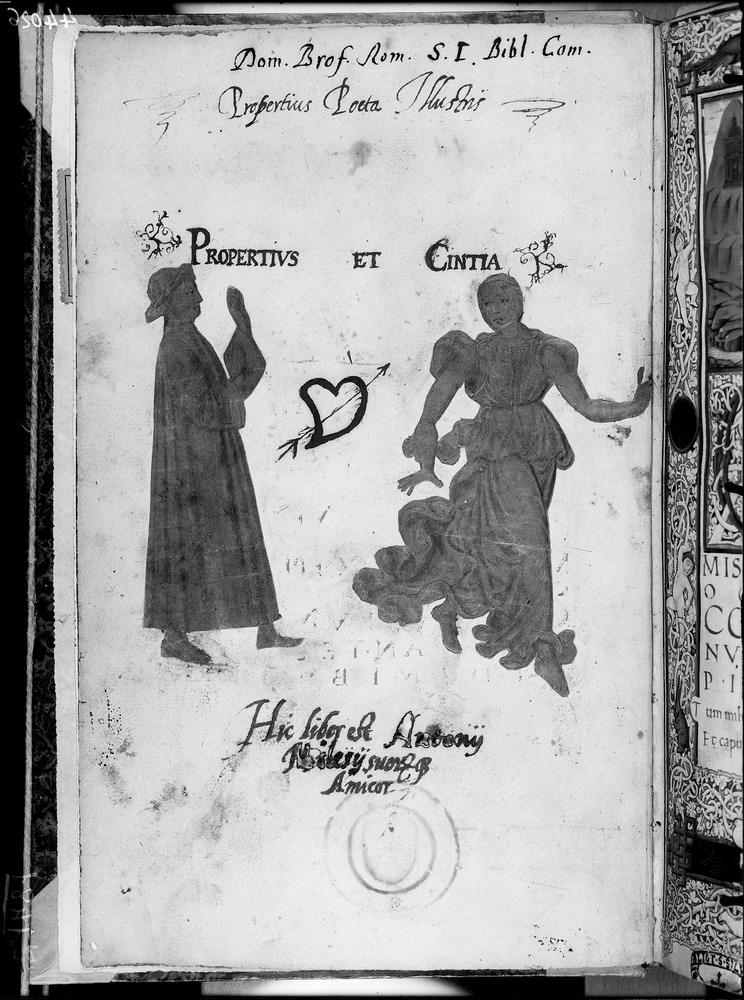 44026
Dom. Prof. Rom. S. I. Bibl. Com.
Propertius Poeta Illustris
PROPERTIVS ET CINTIA
Hic liber est Antonij
suorq
Amicor
MIS
O
CO
NV
P · I
Et capu